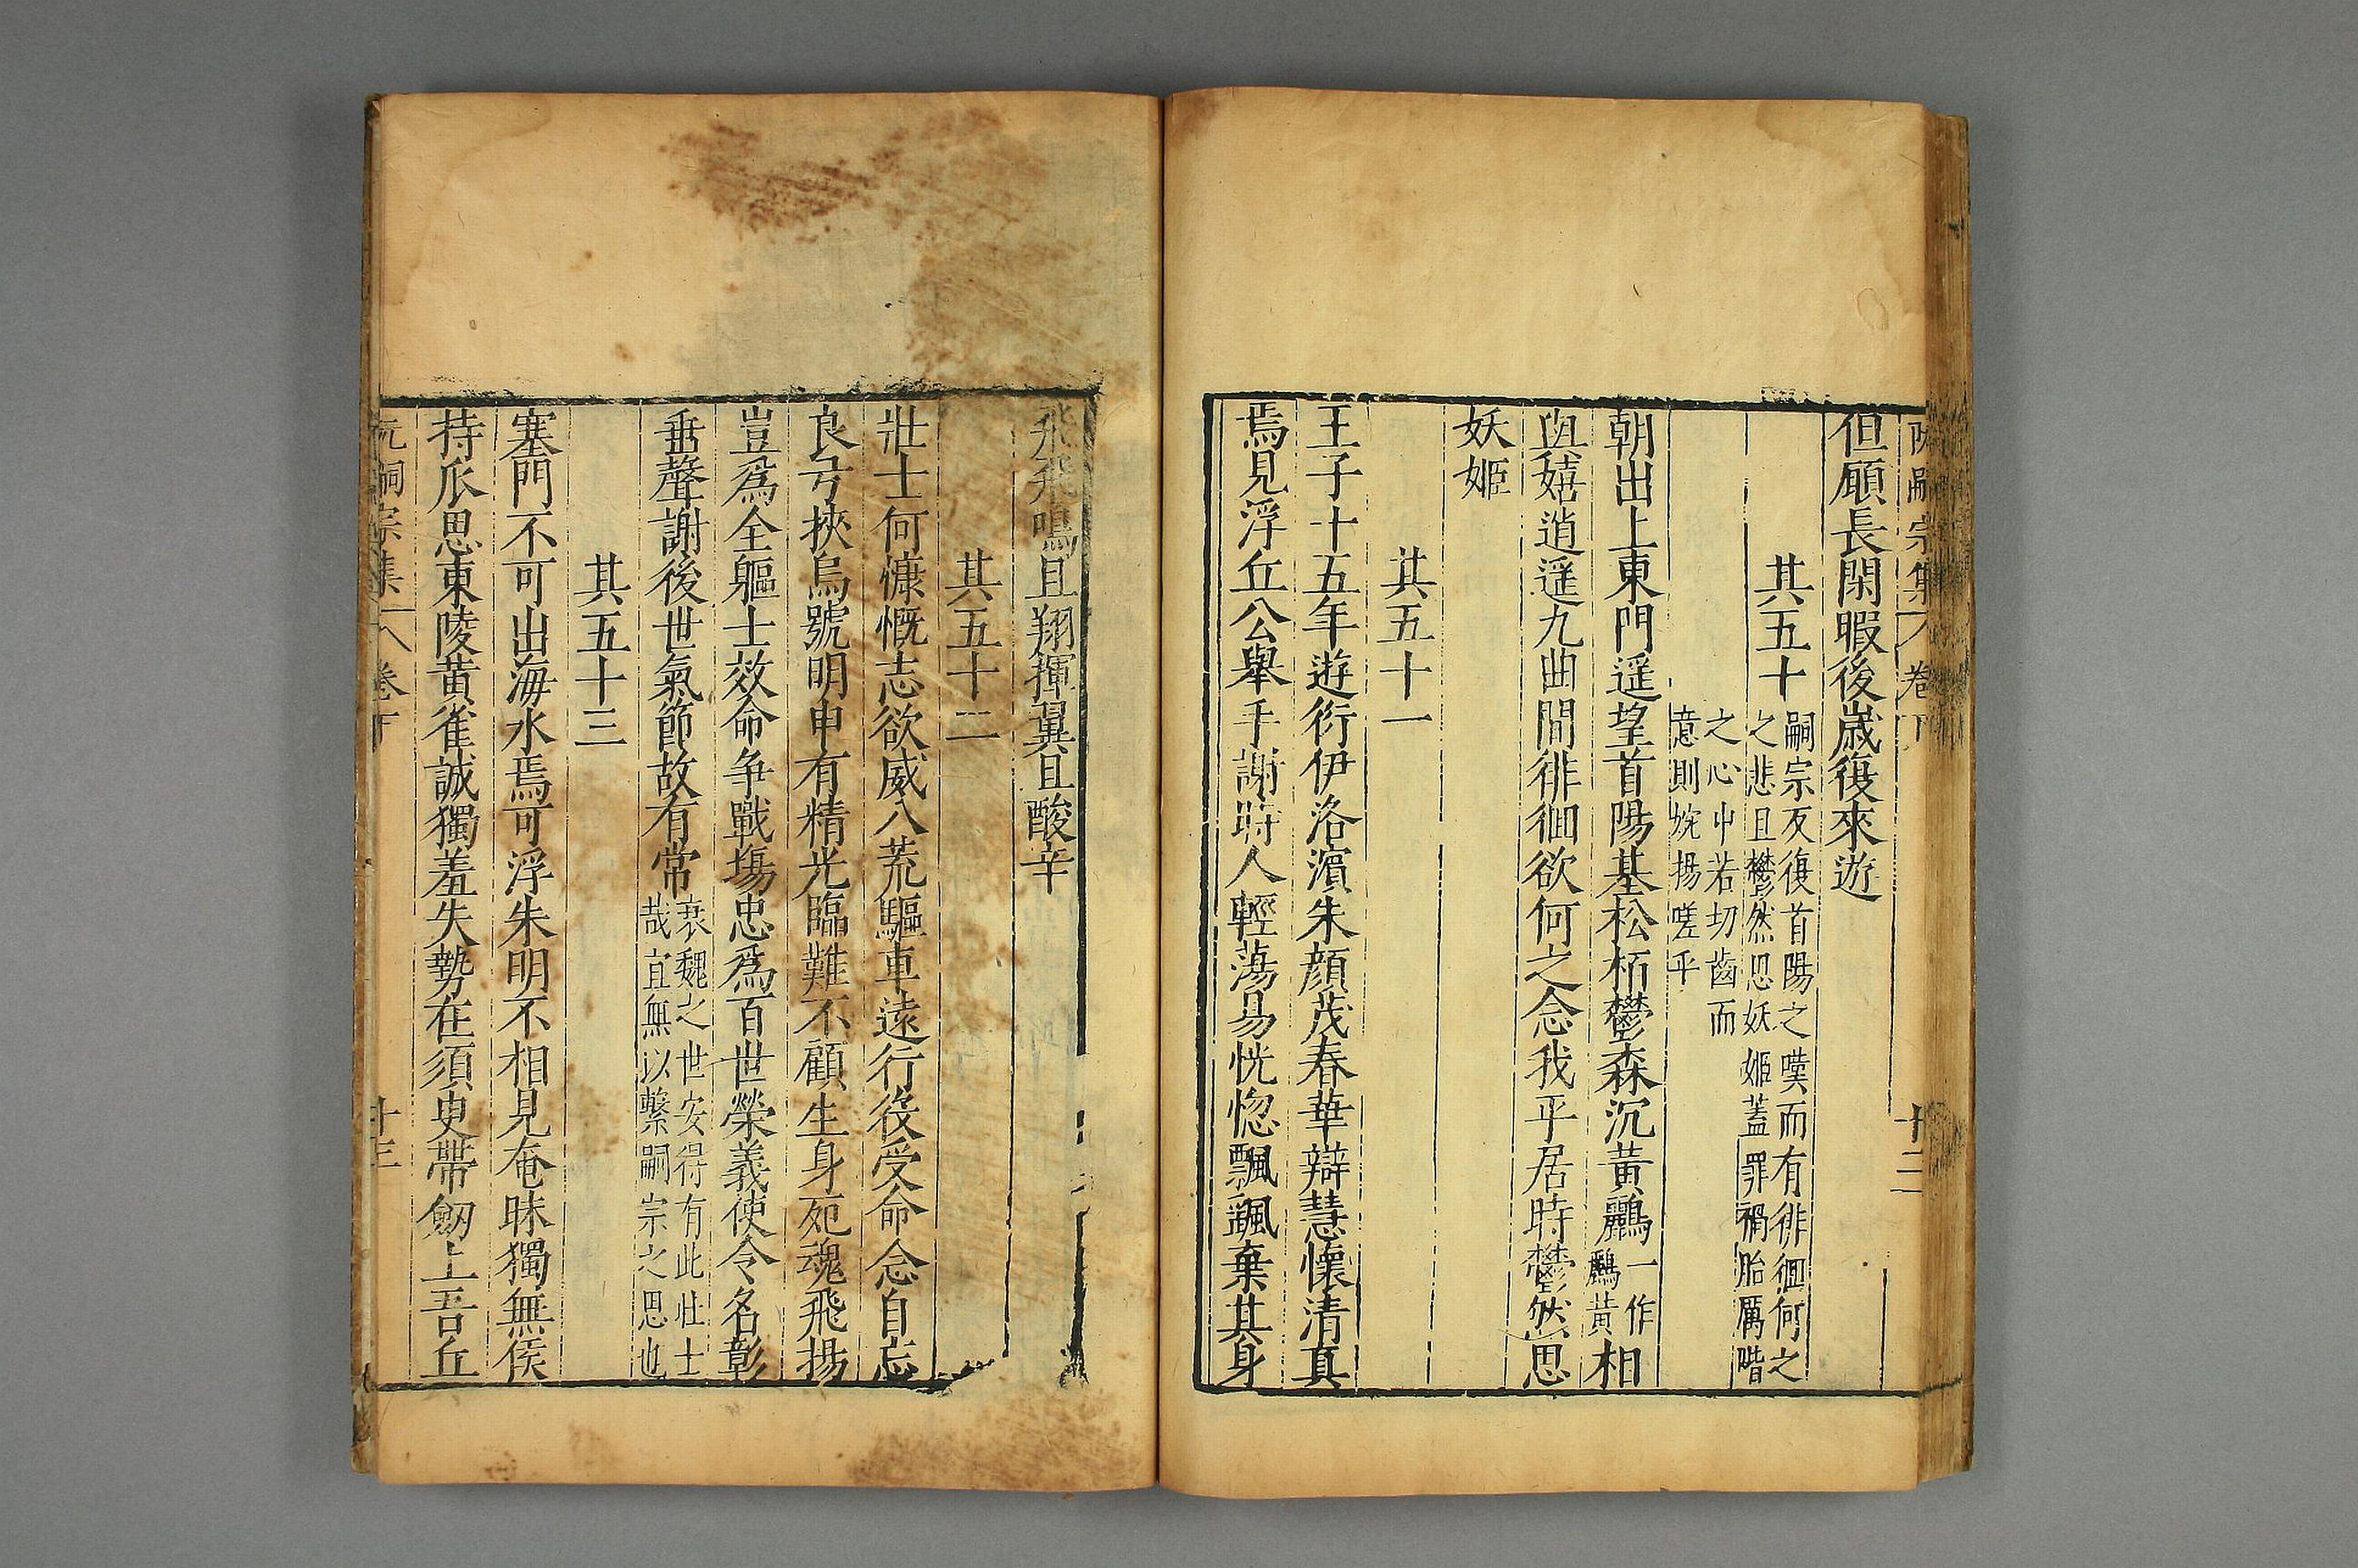 阮嗣宗集 卷下 十二
但願長閑暇後歲復來遊
其五十
嗣宗反復首陽之嘆而有徘徊何之
之悲且鬱然思妖姬蓋罪禍胎厲階
之心中若切齒而
意則婉揚嗟乎
朝出上東門遥望首陽基松栢鬱森沉黃鸝
一作
鸝黃
相
與嬉逍遥九曲間徘徊欲何之念我平居時鬱然思
妖姬
其五十一
王子十五年遊衍伊洛濱朱顔茂春華辯慧懷清真
焉見浮丘公舉手謝時人輕蕩易恍惚飄颻棄其身
飛飛鳴且翔揮翼且酸辛
其五十二
壯士何慷慨志欲威八荒驅車遠行役受命念自忘
良弓挾烏號明甲有精光臨難不顧生身死魂飛揚
豈爲全軀士效命争戰塲忠爲百世榮義使令名彰
垂聲謝後世氣節故有常
衰魏之世安得有此壯士
哉宜無以繫嗣宗之思也
其五十三
塞門不可出海水焉可浮朱明不相見奄昧獨無侯
持瓜思東陵黃雀誠獨羞失勢在須臾帶劒上吾丘
阮嗣宗集 卷下 十三